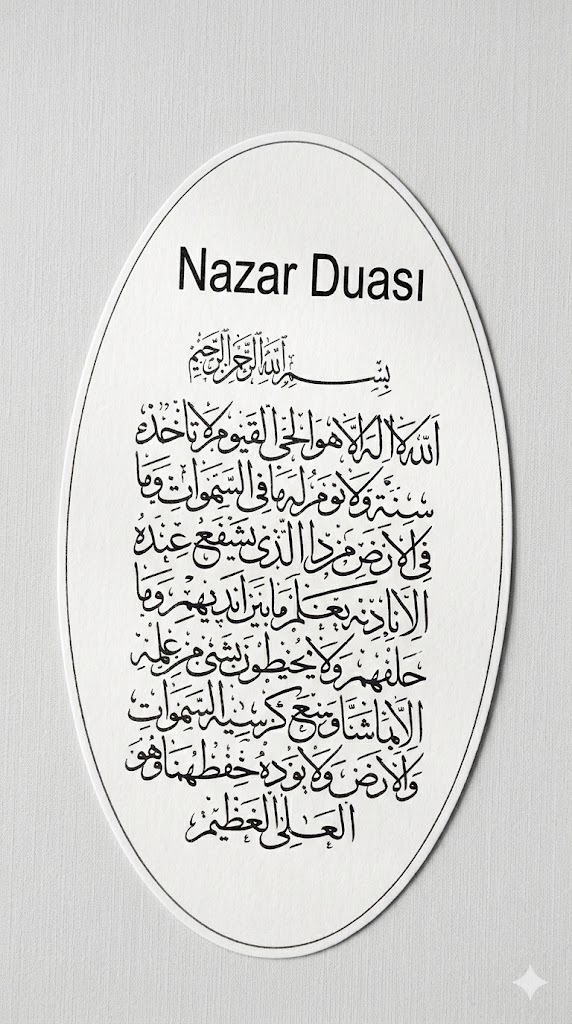 Nazar Duası
بِسْمِ اللهِ الرَّحْمٰنِ الرَّحِيمِ
اَللهُ لَا اِلٰهَ اِلَّا هُوَ الْحَيُّ الْقَيُّومُ لَا تَاْخُذُهُ
سِنَةٌ وَلَا نَوْمٌ لَهُ مَا فِى السَّمٰوَاتِ وَمَا
فِى الْاَرْضِ مَنْ ذَا الَّذِى يَشْفَعُ عِنْدَهُ
اِلَّا بِاِذْنِهِ يَعْلَمُ مَا بَيْنَ اَيْدِيهِمْ وَمَا
خَلْفَهُمْ وَلَا يُحِيطُونَ بِشَىْءٍ مِنْ عِلْمِهِ
اِلَّا بِمَا شَاءَ وَسِعَ كُرْسِيُّهُ السَّمٰوَاتِ
وَالْاَرْضَ وَلَا يَؤُدُهُ حِفْظُهُمَا وَهُوَ
الْعَلِىُّ الْعَظِيمُ